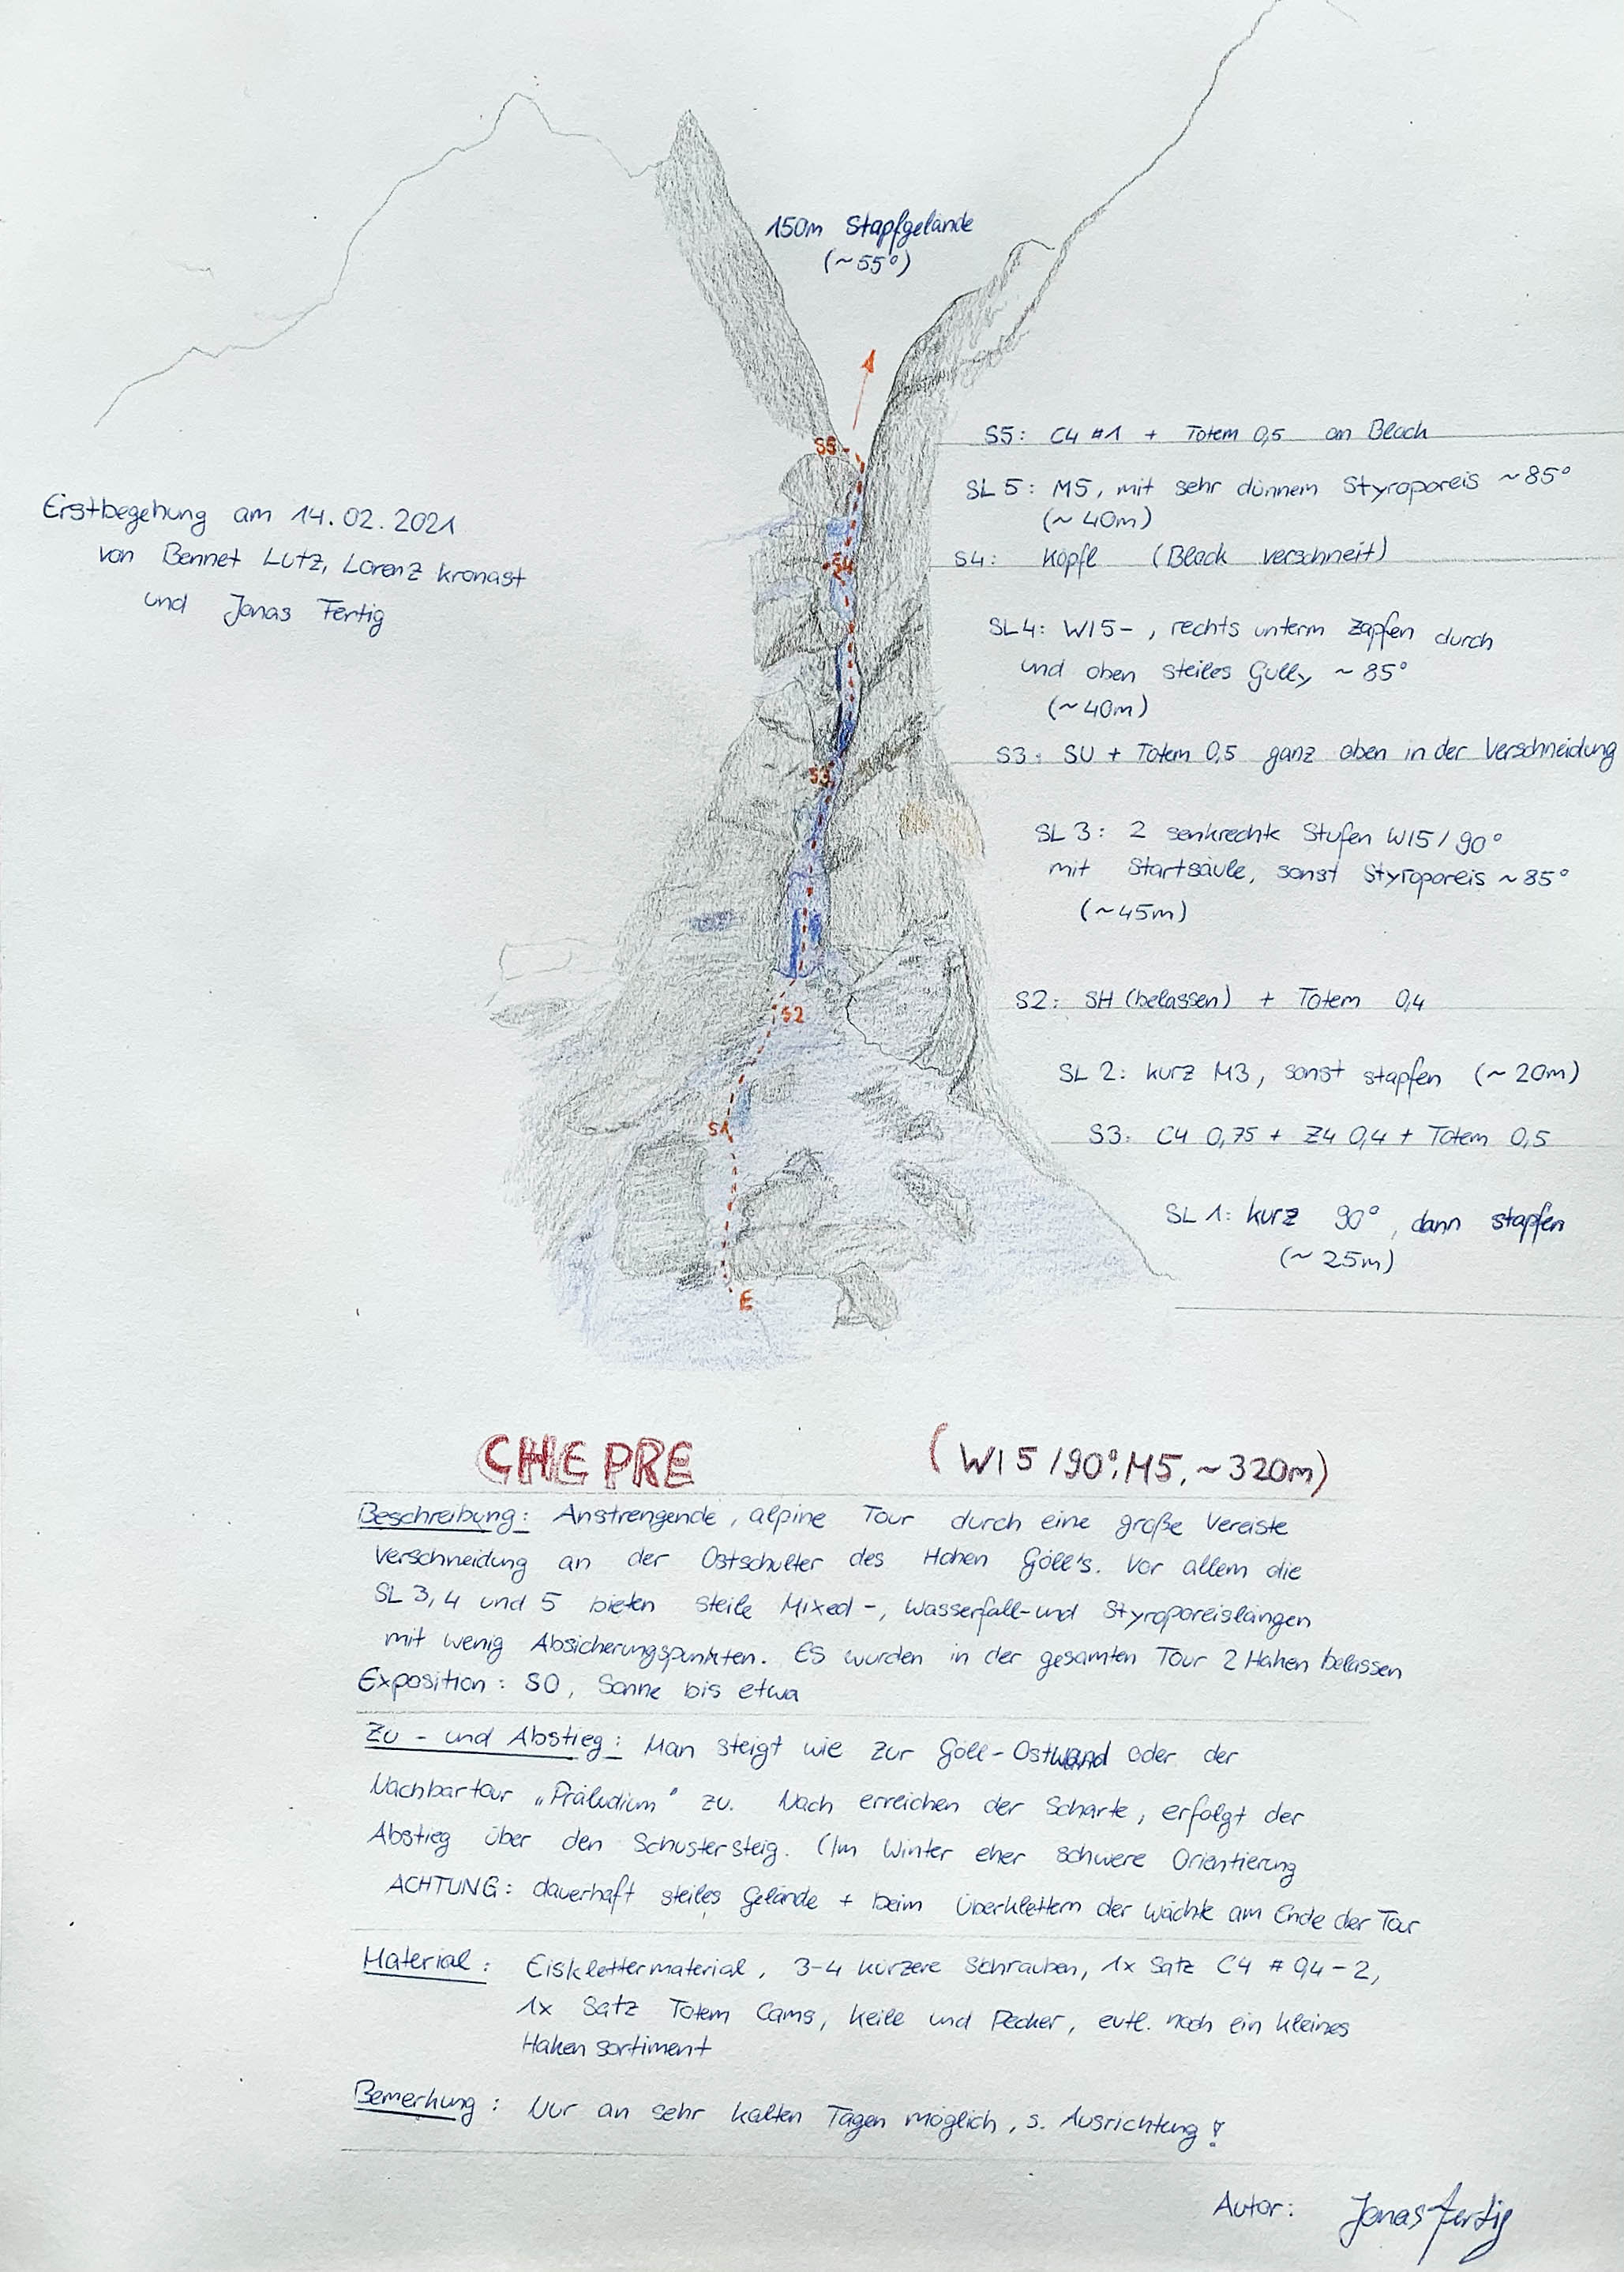 150m Stapfgelände
(~55°)
S5
S5: C4 #1 + Totem 0,5 an Block
SL 5: M5, mit sehr dünnem Styroporeis ~85°
(~40m)
Erstbegehung am 14.02.2021
von Bennet Lutz, Lorenz Kronast
und Jonas Fertig
S4
S4: Köpfl (Block verschneit)
SL4: WI5-, rechts unterm Zapfen durch
und oben steiles Gully ~85°
(~40m)
S3
S3: SU + Totem 0,5 ganz oben in der Verschneidung
SL 3: 2 senkrechte Stufen WI5/90°
mit Startsäule, sonst Styroporeis ~85°
(~45m)
S2
S2: SH (belassen) + Totem 0,4
SL 2: kurz M3, sonst stapfen (~20m)
S1
S3: C4 0,75 + Z4 0,4 + Totem 0,5
SL 1: kurz 90°, dann stapfen
(~25m)
E
CHIE PRE (WI5/90°, M5, ~320m)
Beschreibung: Anstrengende, alpine Tour durch eine große vereiste
Verschneidung an der Ostschulter des Hohen Göll's. Vor allem die
SL 3,4 und 5 bieten steile Mixed-, Wasserfall- und Styroporeislängen
mit wenig Absicherungspunkten. Es wurden in der gesamten Tour 2 Haken belassen
Exposition: SO, Sonne bis etwa
Zu- und Abstieg: Man steigt wie zur Göll-Ostwand oder der
Nachbartour „Präludium" zu. Nach erreichen der Scharte, erfolgt der
Abstieg über den Schustersteig. (Im Winter eher schwere Orientierung
ACHTUNG: dauerhaft steiles Gelände + beim Überklettern der Wächte am Ende der Tour
Material: Eisklettermaterial, 3-4 kürzere Schrauben, 1x Satz C4 #0,4-2,
1x Satz Totem Cams, Keile und Pecker, evtl. noch ein kleines
Hakensortiment
Bemerkung: Nur an sehr kalten Tagen möglich, s. Ausrichtung!
Autor: Jonas Fertig